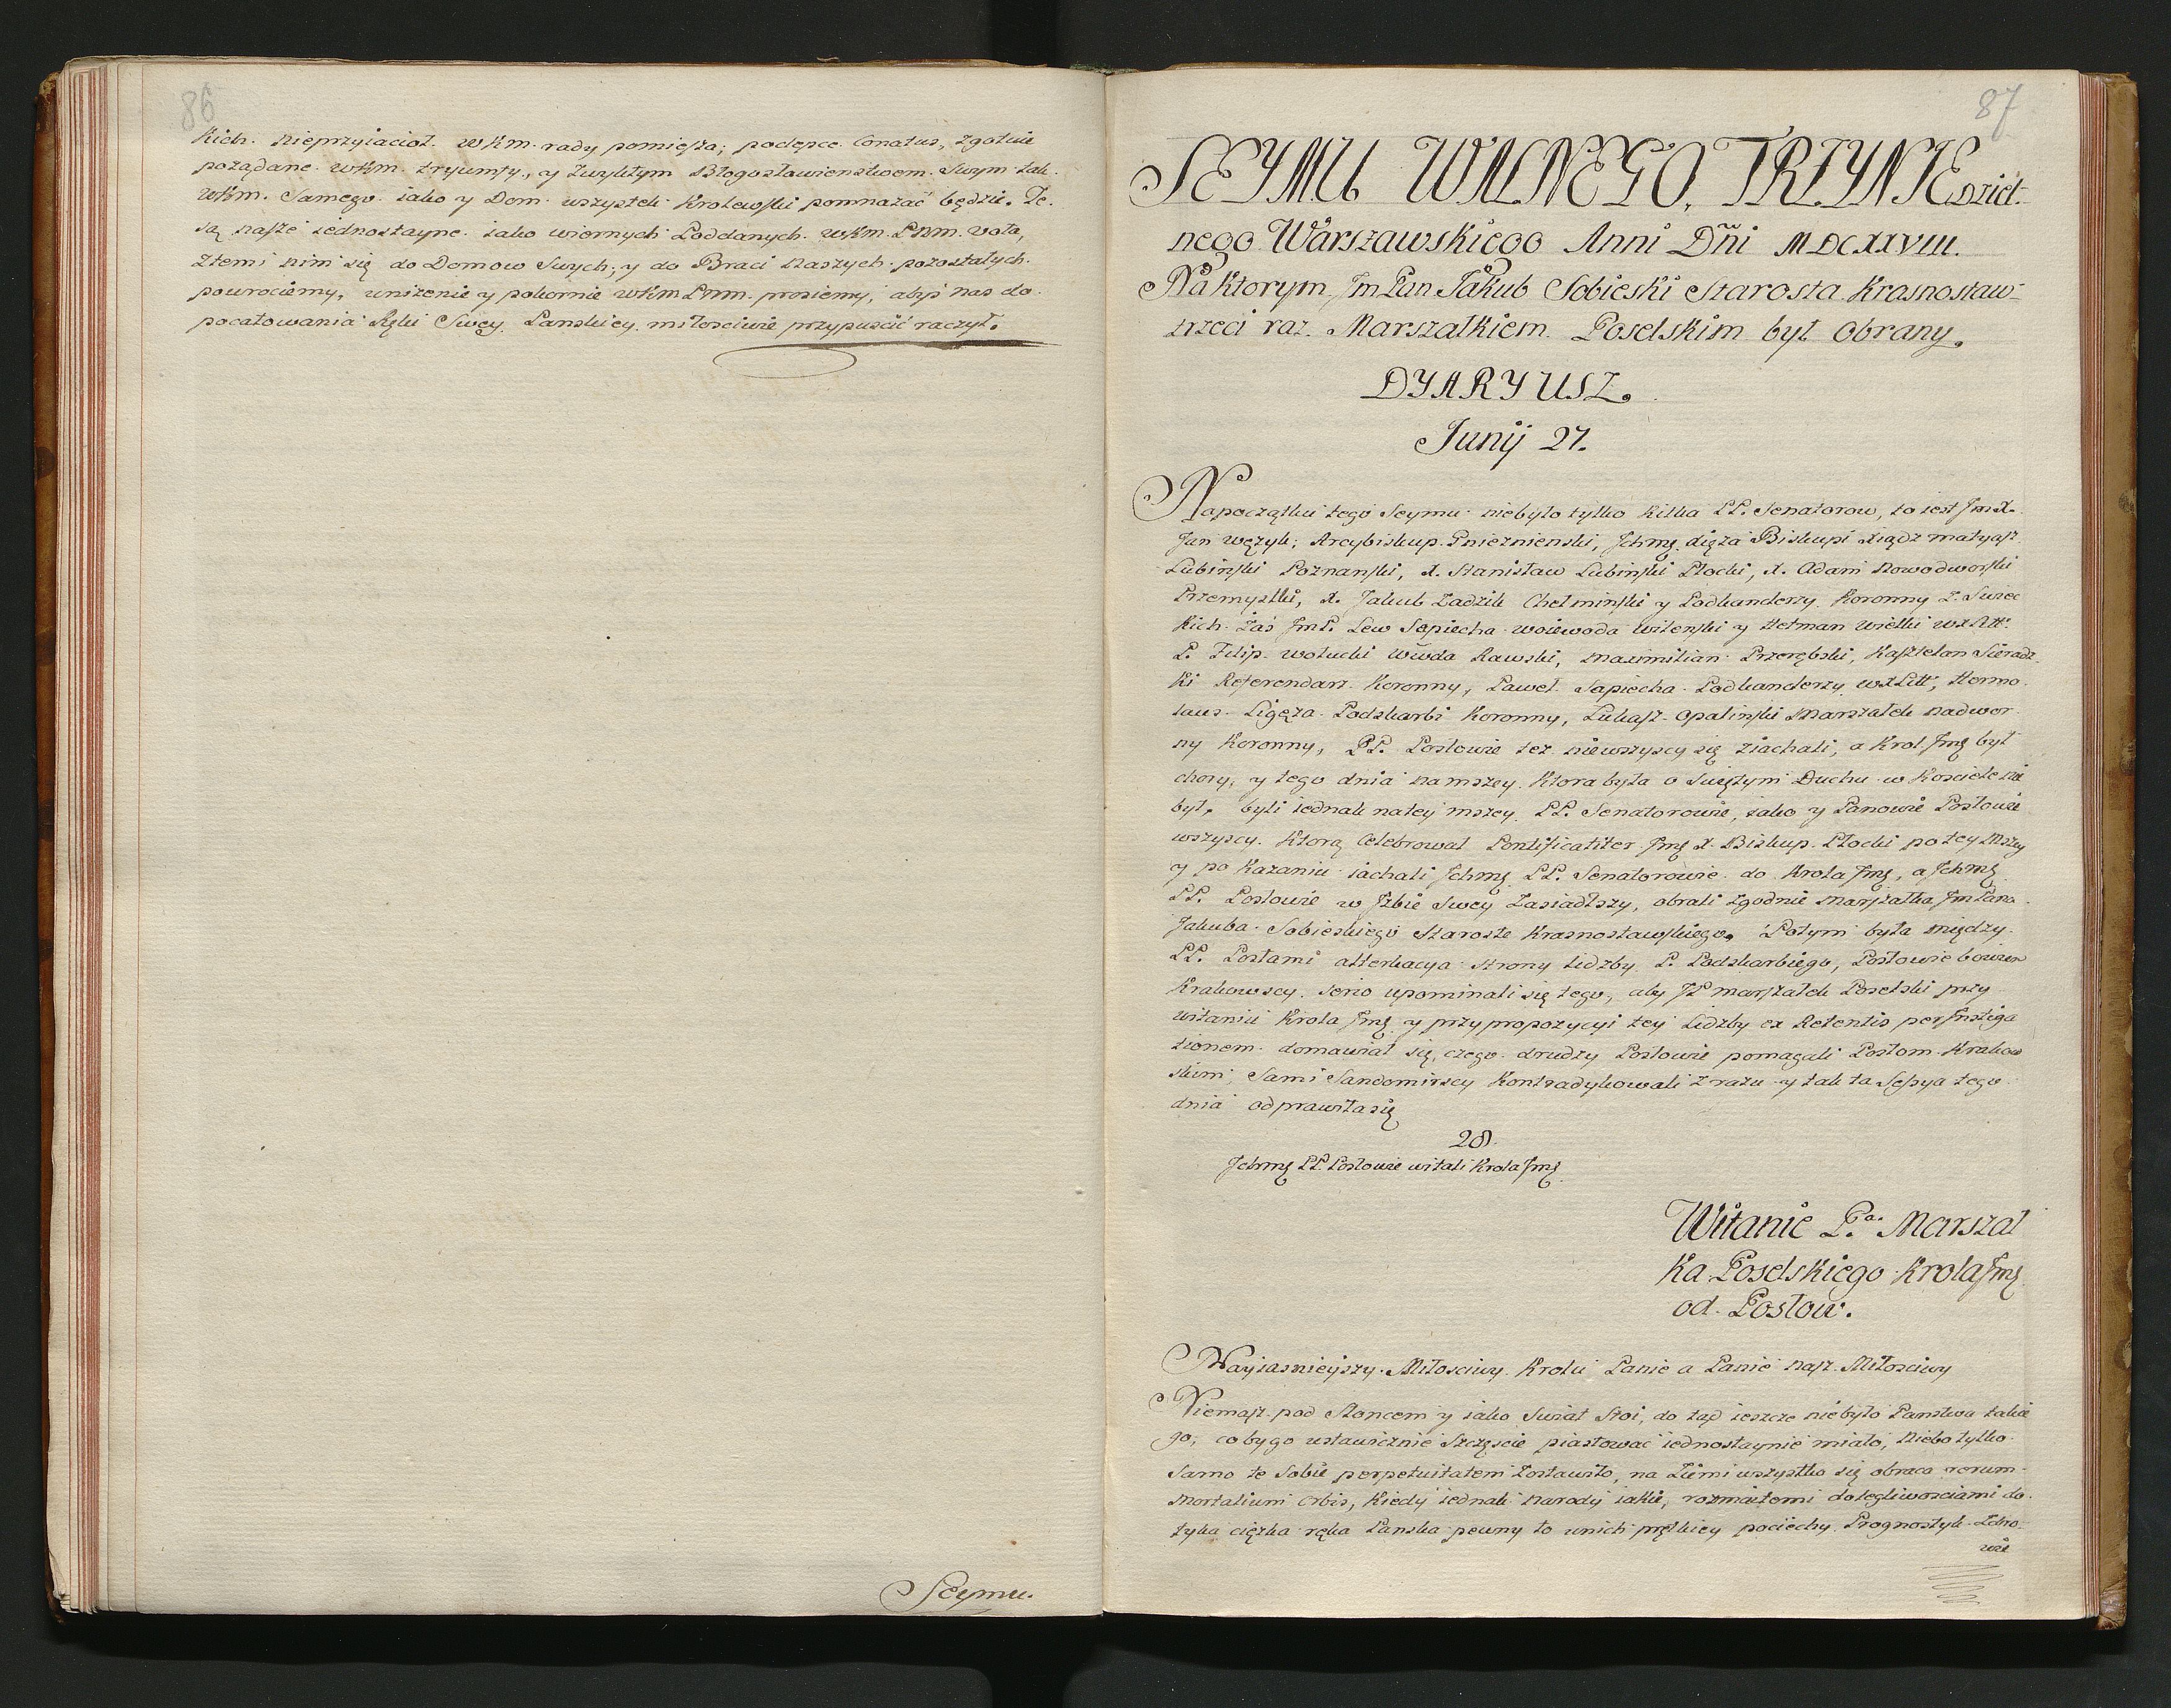 86
kich. nieprzyiacioł. wKm. rady pomiesza; podepce. Conatus, zgotuie
pożądane. wKm. tryumfy., y zwykłym Błogosławienstwem. Swym tak.
wKm. Samego. iako y Dom. wszystek Krolewski pomnażać będzie. Te.
są nasze iednostayne. iako wiernych Poddanych. wKm. Pnm. vota,
z temi nim się do Domow Swych; y do Braci Naszych. pozostałych.
powrociemy, uniżenie y pokornie wKm Pnm. prosiemy, abyś nas do.
pocałowania Ręki Swey. Panskiey. miłosciwie przypuscić raczył.
Seymu.
87
SEYMU WALNEGO, TRZYNIEDziel.
nego Warszawskiego Anni Dñi MDCXXVIII.
Na Ktorym Jm Pan Jakub Sobieski Starosta Krasnostaw.
trzeci raz. Marszałkiem. Poselskim był Obrany.
DYARYUSZ.
Junij 27.
Napoczątku tego Seymu niebyło tylko kilka PP. Senatorow, to iest Jm X.
Jan Wężyk; Arcybiskup. Gnieznienski, Ichmę. Xięża Biskupi Xiądz Matyasz
Lubinski Poznanski, X. Stanisław Lubinski Płocki, X. Adam Nowodworski
Przemyslki, X. Jakub Zadzik Chełminski y Podkanclerzy. Koronny Z. Swiec
kich. Zaś JmP. Lew Sapiecha woiewoda wilenski y Hetman wielki wXLitt:
P. Filip. wołucki Wwda Rawski, Maximilian Przerębski, Kasztelan Sieradz
ki Referendarz. Koronny, Paweł. Sapiecha. Podkanclerzy wXLitt, Hermo.
laus. Ligęza. Podskarbi Koronny, Lukasz. Opalinski Marszałek nadwor
ny Koronny, PP. Posłowie też niewszyscy się ziachali, a Krol Jmę był
chory, y tego dnia namszey. ktora była o Swiętym Duchu. w Kosciele nie
był, byli iednak natey mszey. PP. Senatorowie, iako y Panowie Posłowie
wszyscy. Ktorą Celebrował Pontificaliter. Jmę X. Biskup. Płocki po tey Mszey
y po Kazaniu iachali Ichmę PP. Senatorowie. do Krola Jmę, a Ichmę
PP. Posłowie w Izbie Swey Zasiadłszy, obrali zgodnie Marszałka Jm Pana
Jakuba. Sobieskiego Staroste Krasnostawskiego. Potym była między.
PP. Posłami alterkacya strony Lidzby P. Podskarbiego, Posłowie bowiem
Krakowscy. serio upominali się tego, aby JP Marszałek Poselski przy
witaniu Krola Jmę y przy propozycyi tey Lidzby ex Retentis per Instiga
tionem. domawiał się, czego. drudzy Posłowie pomagali Posłom. Krakow
skim, Sami Sandomirscy Kontradykowali zrazu y tak ta Sessya tego
dnia odprawiła się
28.
Ichmę PP. Posłowie witali Krola Jmę.
Witanie P.ª Marszał
ka Poselskiego Krola Jmę
od. Posłow.
Nayiasnieyszy. Miłosciwy. Krolu Panie a Panie nasz. Miłosciwy
Niemasz. pod Słoncem y iako Swiat Stoi, do tąd ieszcze niebyło Panstwa takie
go, coby go ustawicznie Szczęscie piastować iednostaynie miało, Niebo tylko.
Samo te Sobie perpetuitatem zostawiło, na Ziemi wszystko się obraca rerum.
Mortalium Orbis, Kiedy iednak Narody iakie, rozmaitemi dolegliwosciami do.
tyka ciężka ręka Panska pewny to unich prętkiey pociechy Prognostyk. Zdro.
wie